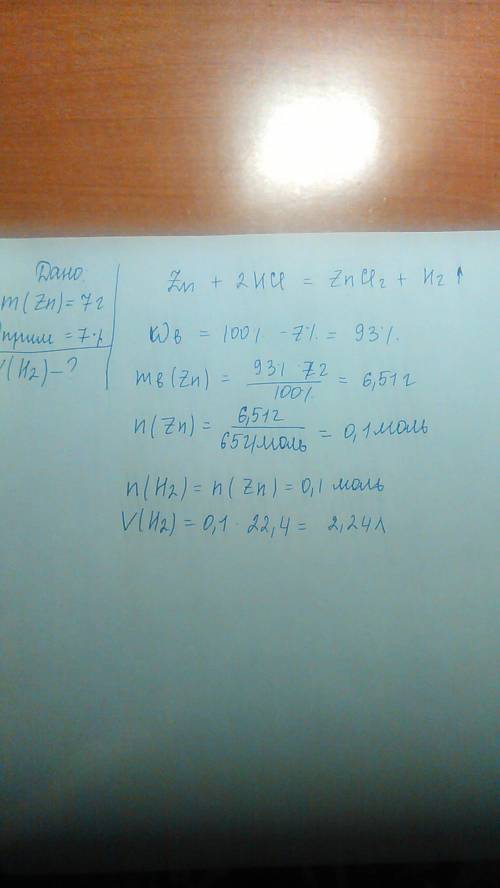 Дано:
m(Zn)=7г
прим =7%
V(H₂)-?
Zn + 2HCl = ZnCl₂ + H₂↑
ωв = 100% -7% = 93%.
mв(Zn) = 93% · 7г / 100% = 6,51г
n(Zn) = 6,51г / 65г/моль = 0,1моль
n(H₂) = n(Zn) = 0,1 моль
V(H₂) = 0,1 · 22,4 = 2,24л